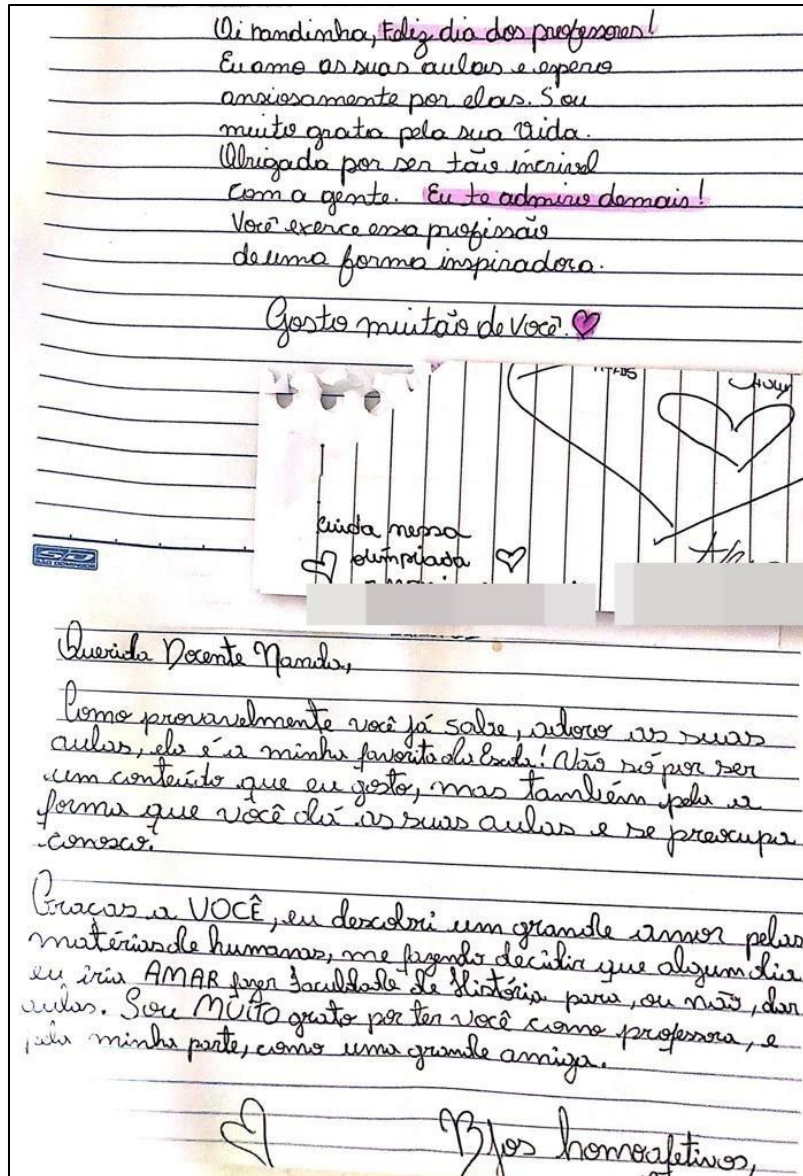 Oi nandinha, Feliz dia dos professores!
Eu amo as suas aulas e espero
ansiosamente por elas. Sou
muito grata pela sua vida.
Obrigada por ser tão incrivel
com a gente. Eu te admiro demais!
Você exerce essa profissão
de uma forma inspiradora.
Gosto muitão de você.
nessa
olimpíada
SD
SÃO DOMINGOS
Querida Docente Nanda,
Como provavelmente você já sabe, adoro as suas
aulas, ela é a minha favorita da Escola! Não só por ser
um conteúdo que eu gosto, mas também pela a
forma que você dá as suas aulas e se preocupa
conosco.
Graças a VOCÊ, eu descobri um grande amor pelas
matérias de humanas, me fazendo decidir que algum dia
eu iria AMAR fazer faculdade de História para, ou não, dar
aulas. Sou MUITO grato por ter você como professora, e
pela minha parte, como uma grande amiga.
Bjos homoafetivos,